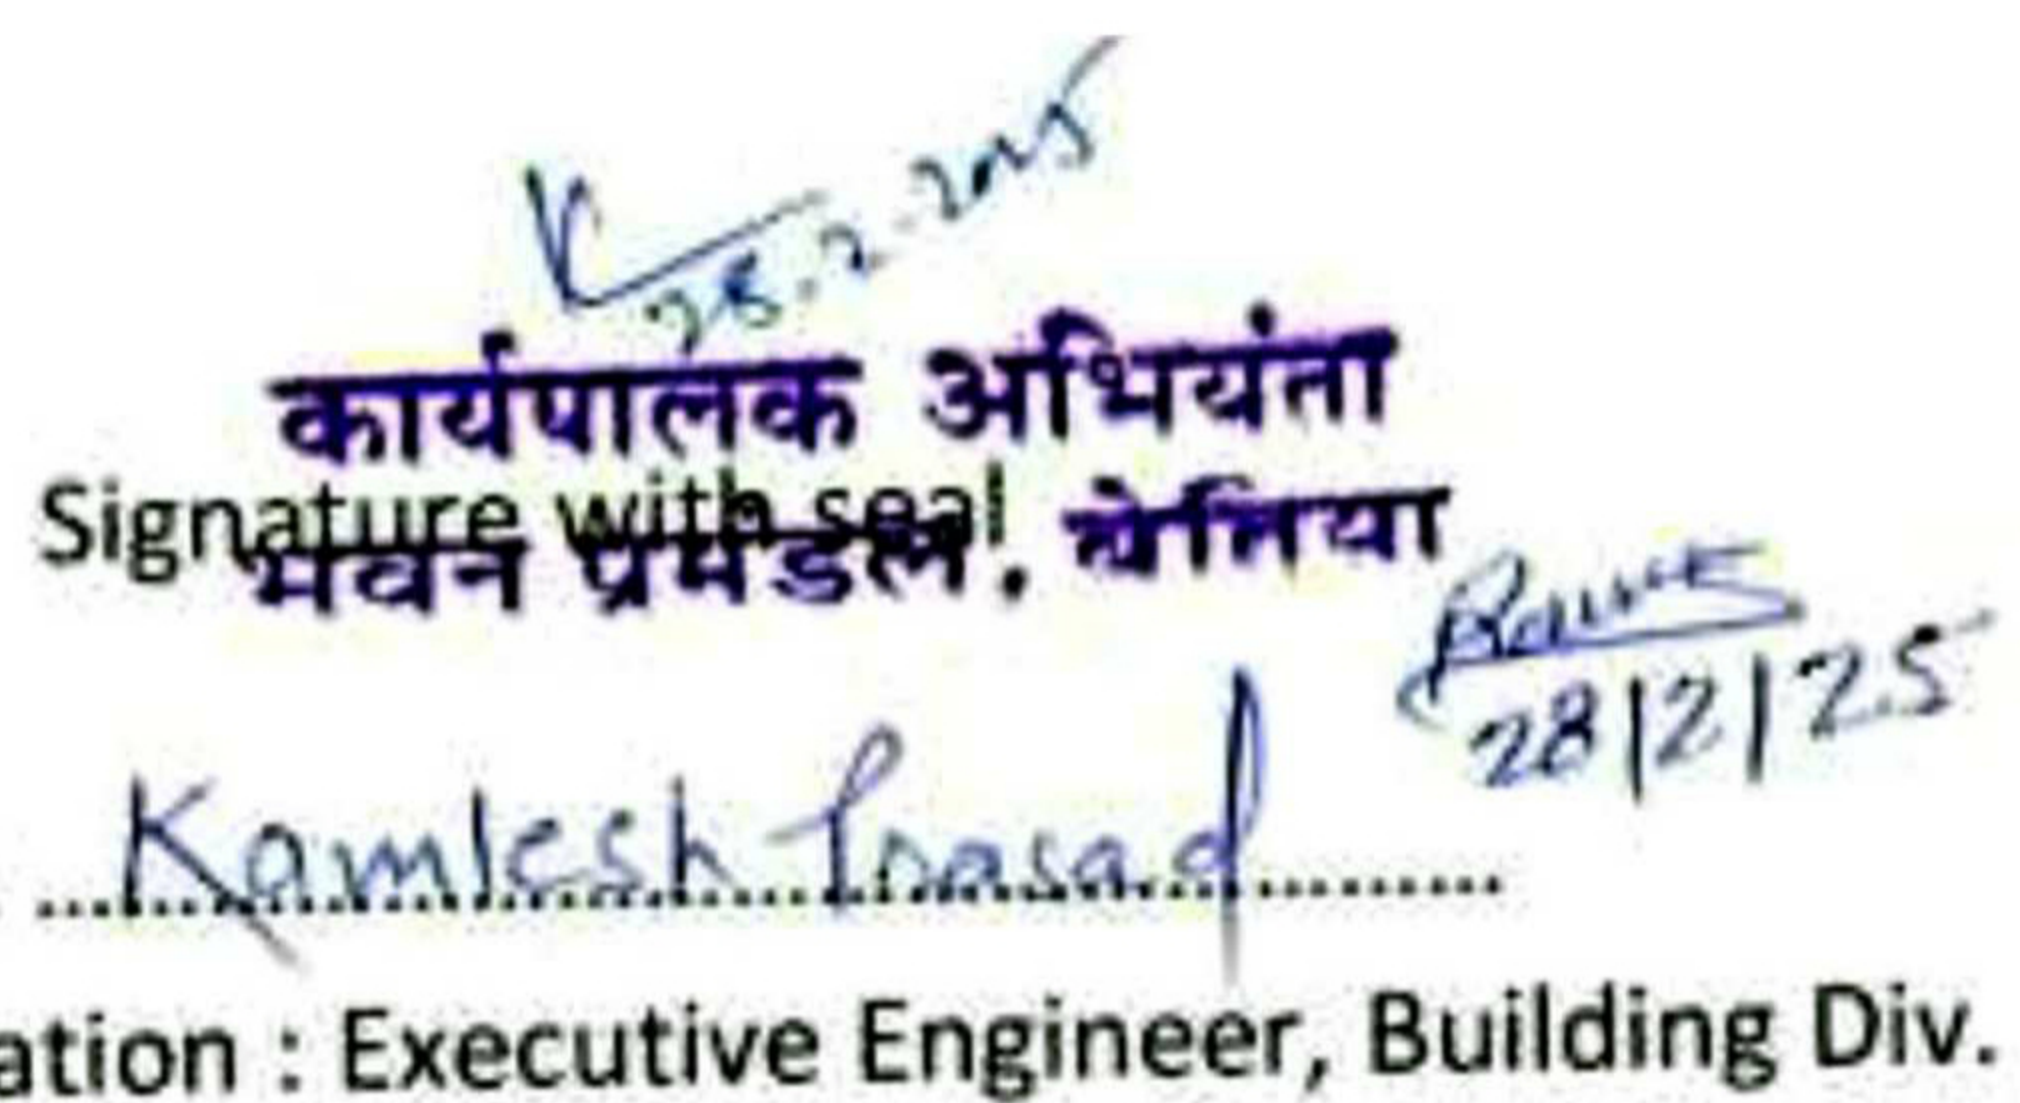 28.2.2025
कार्यपालक अभियंता
Signature with seal
भवन प्रमंडल,
28/2/25
Kamlesh Prasad
ation : Executive Engineer, Building Div.